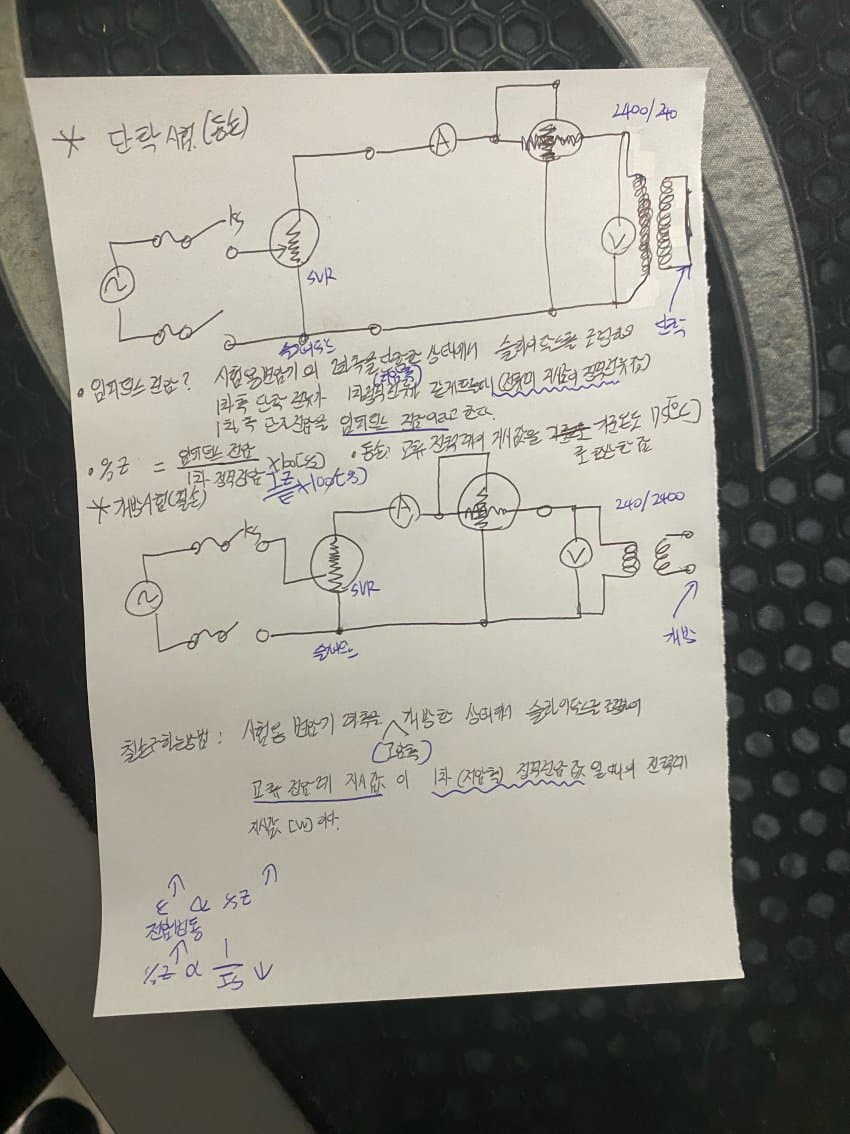 * 단락시험(동손)
2400/240
A
ks
SVR
V
단락
슬라이닥스
• 임피던스 전압? 시험용변압기의 2차측을 단락한 상태에서 슬라이닥스를 조정하여
(저압측)
1차측 단락 전류가 1차 정격전류와 같게 될 때
1차측 단자전압을 임피던스 전압이라고 한다.
• %Z = 임피던스 전압 / 1차 정격전압 ×100[%]
IZ/E ×100[%]
• 동손: 교류 전력계의 지시값을 기준온도 75[°C]
로 환산한 값
* 개방시험(철손)
240/2400
A
ks
SVR
V
슬라이닥스
개방
철손구하는방법: 시험용 변압기 2차측을 개방한 상태에서 슬라이닥스를 조정하여
(고압측)
교류 전압계 지시값이 1차(저압측) 정격전압 값 일 때의 전력계
지시값 [W]이다.
ε↑ ∝ %Z ↑
전압변동
%Z↑ ∝ 1/Is ↓